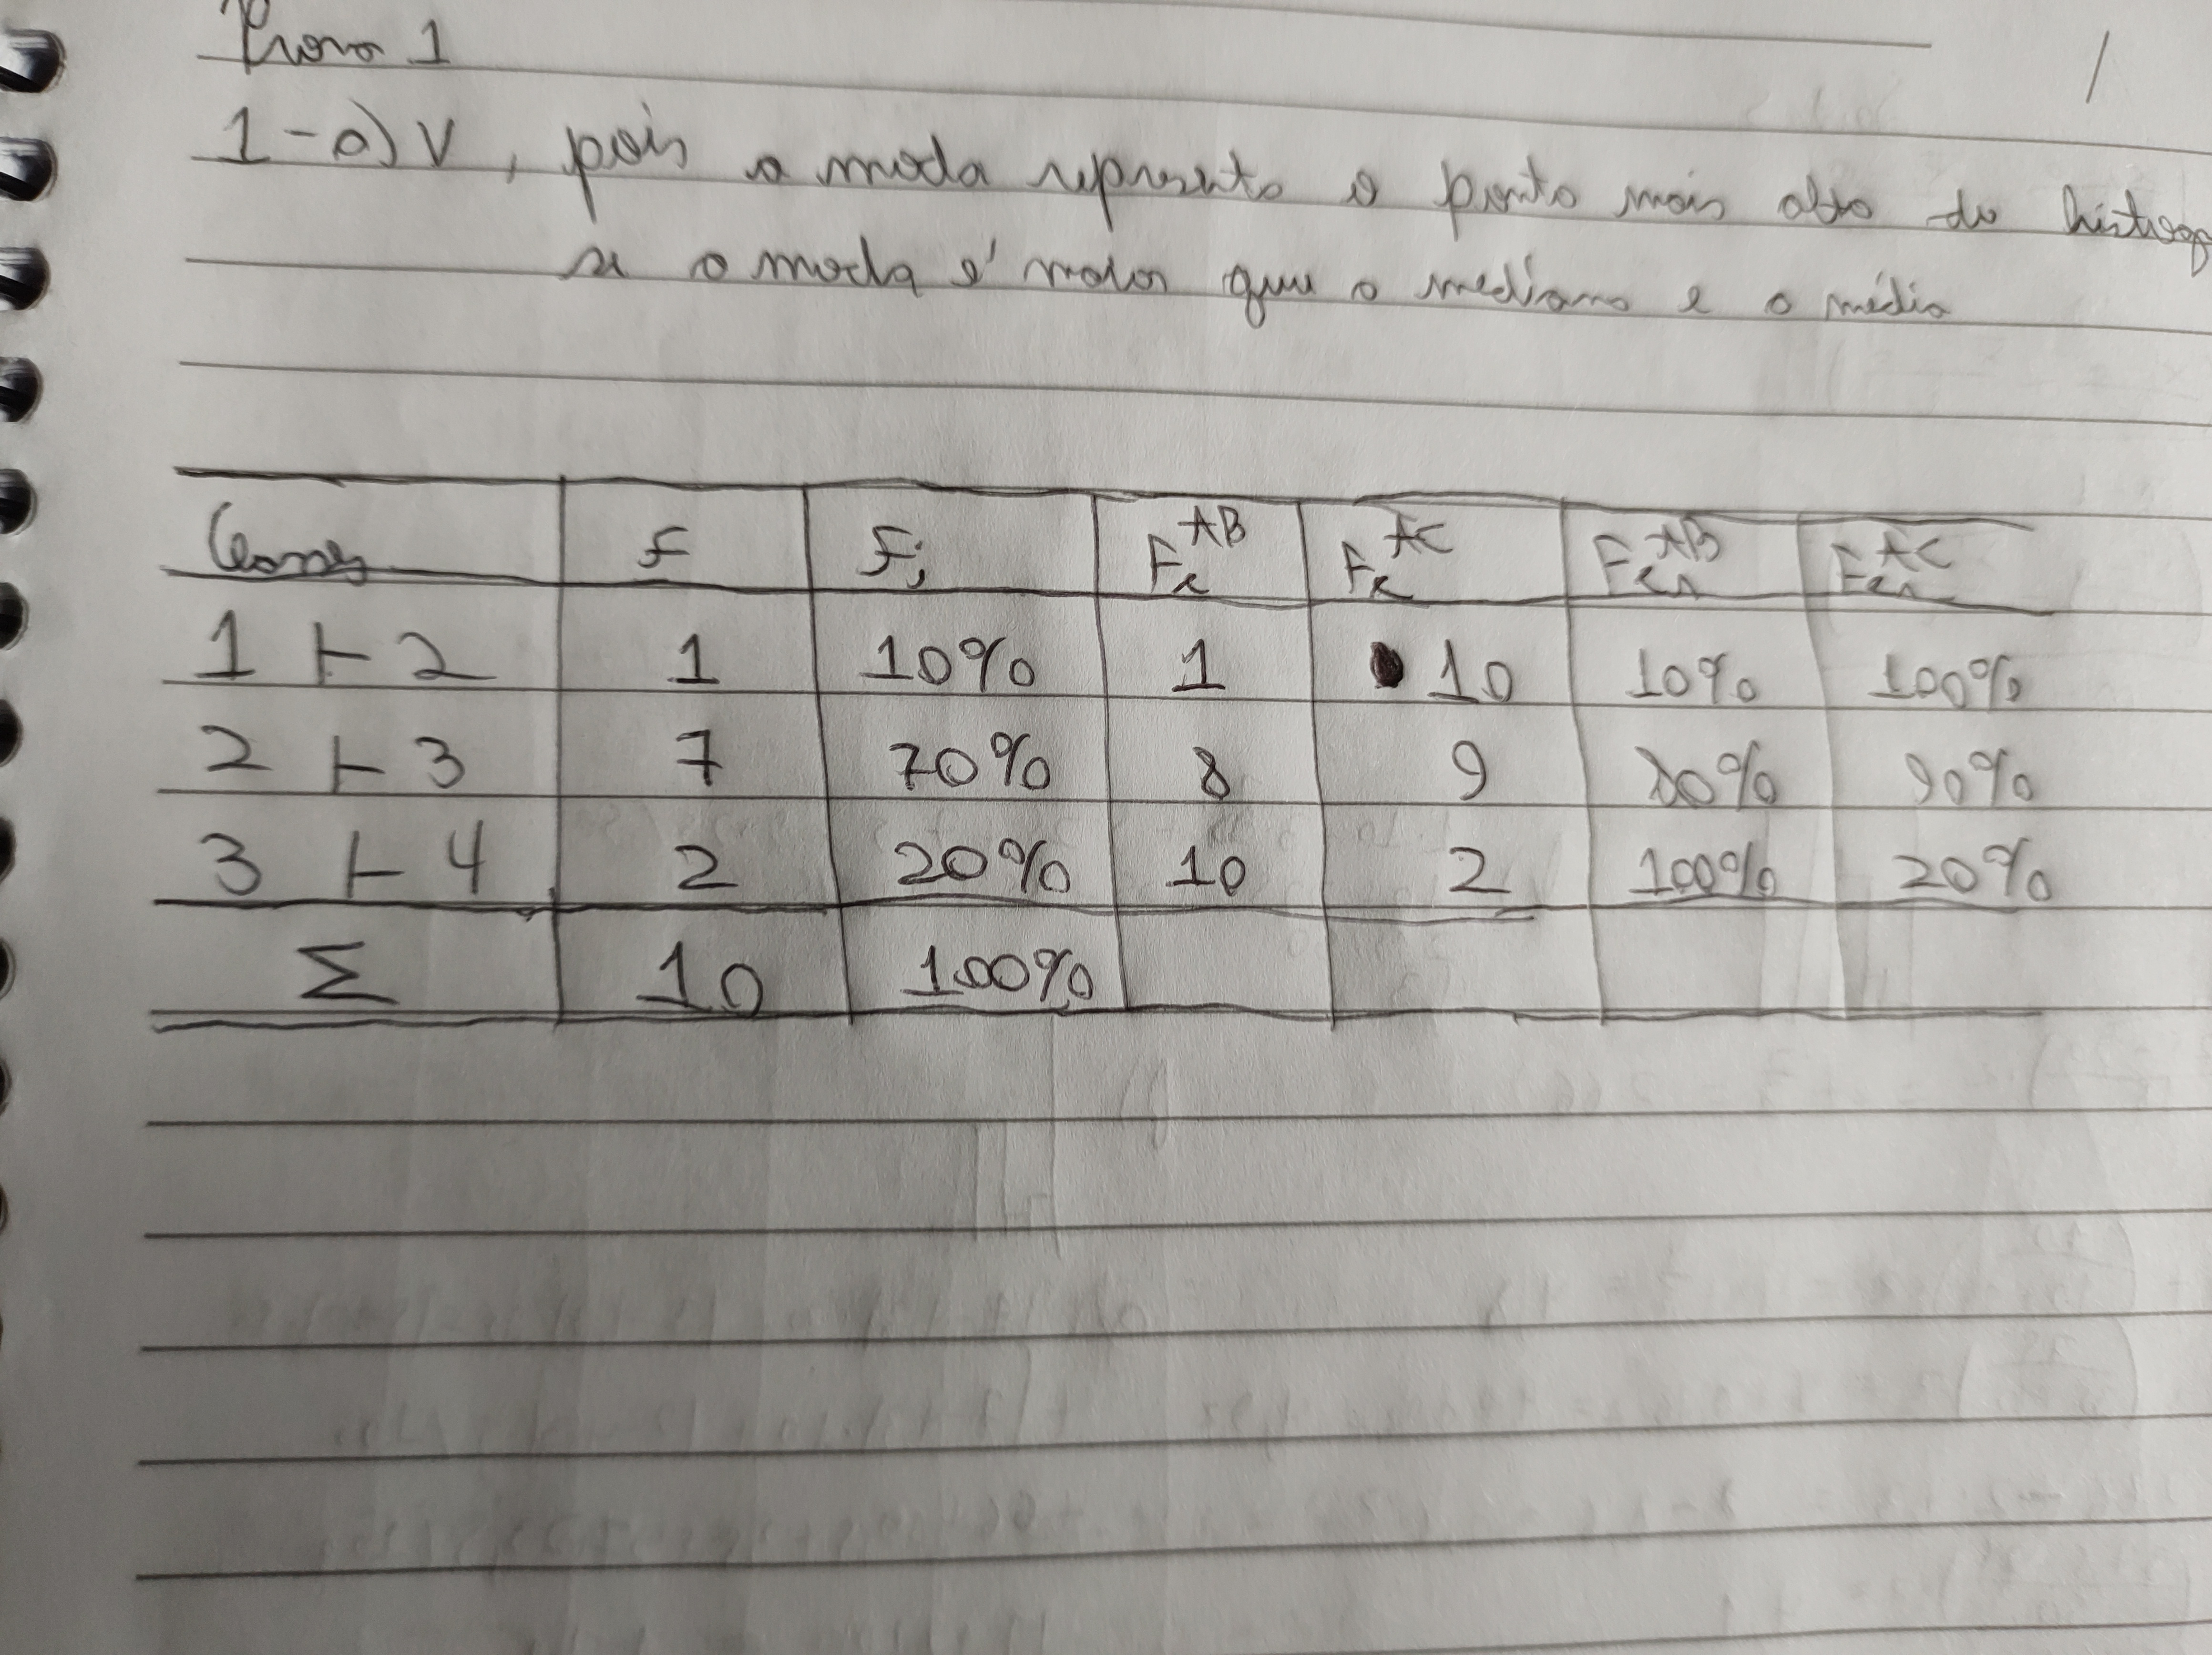 Prova 1
1-a) V, pois a moda representa o ponto mais alto do histog
se a moda é maior que a mediana e a média
Classes f Fi Fc AB Fc AC Fcr AB Fcr AC
1 ⊢ 2 1 10% 1 10 10% 100%
2 ⊢ 3 7 70% 8 9 80% 90%
3 ⊢ 4 2 20% 10 2 100% 20%
Σ 10 100%